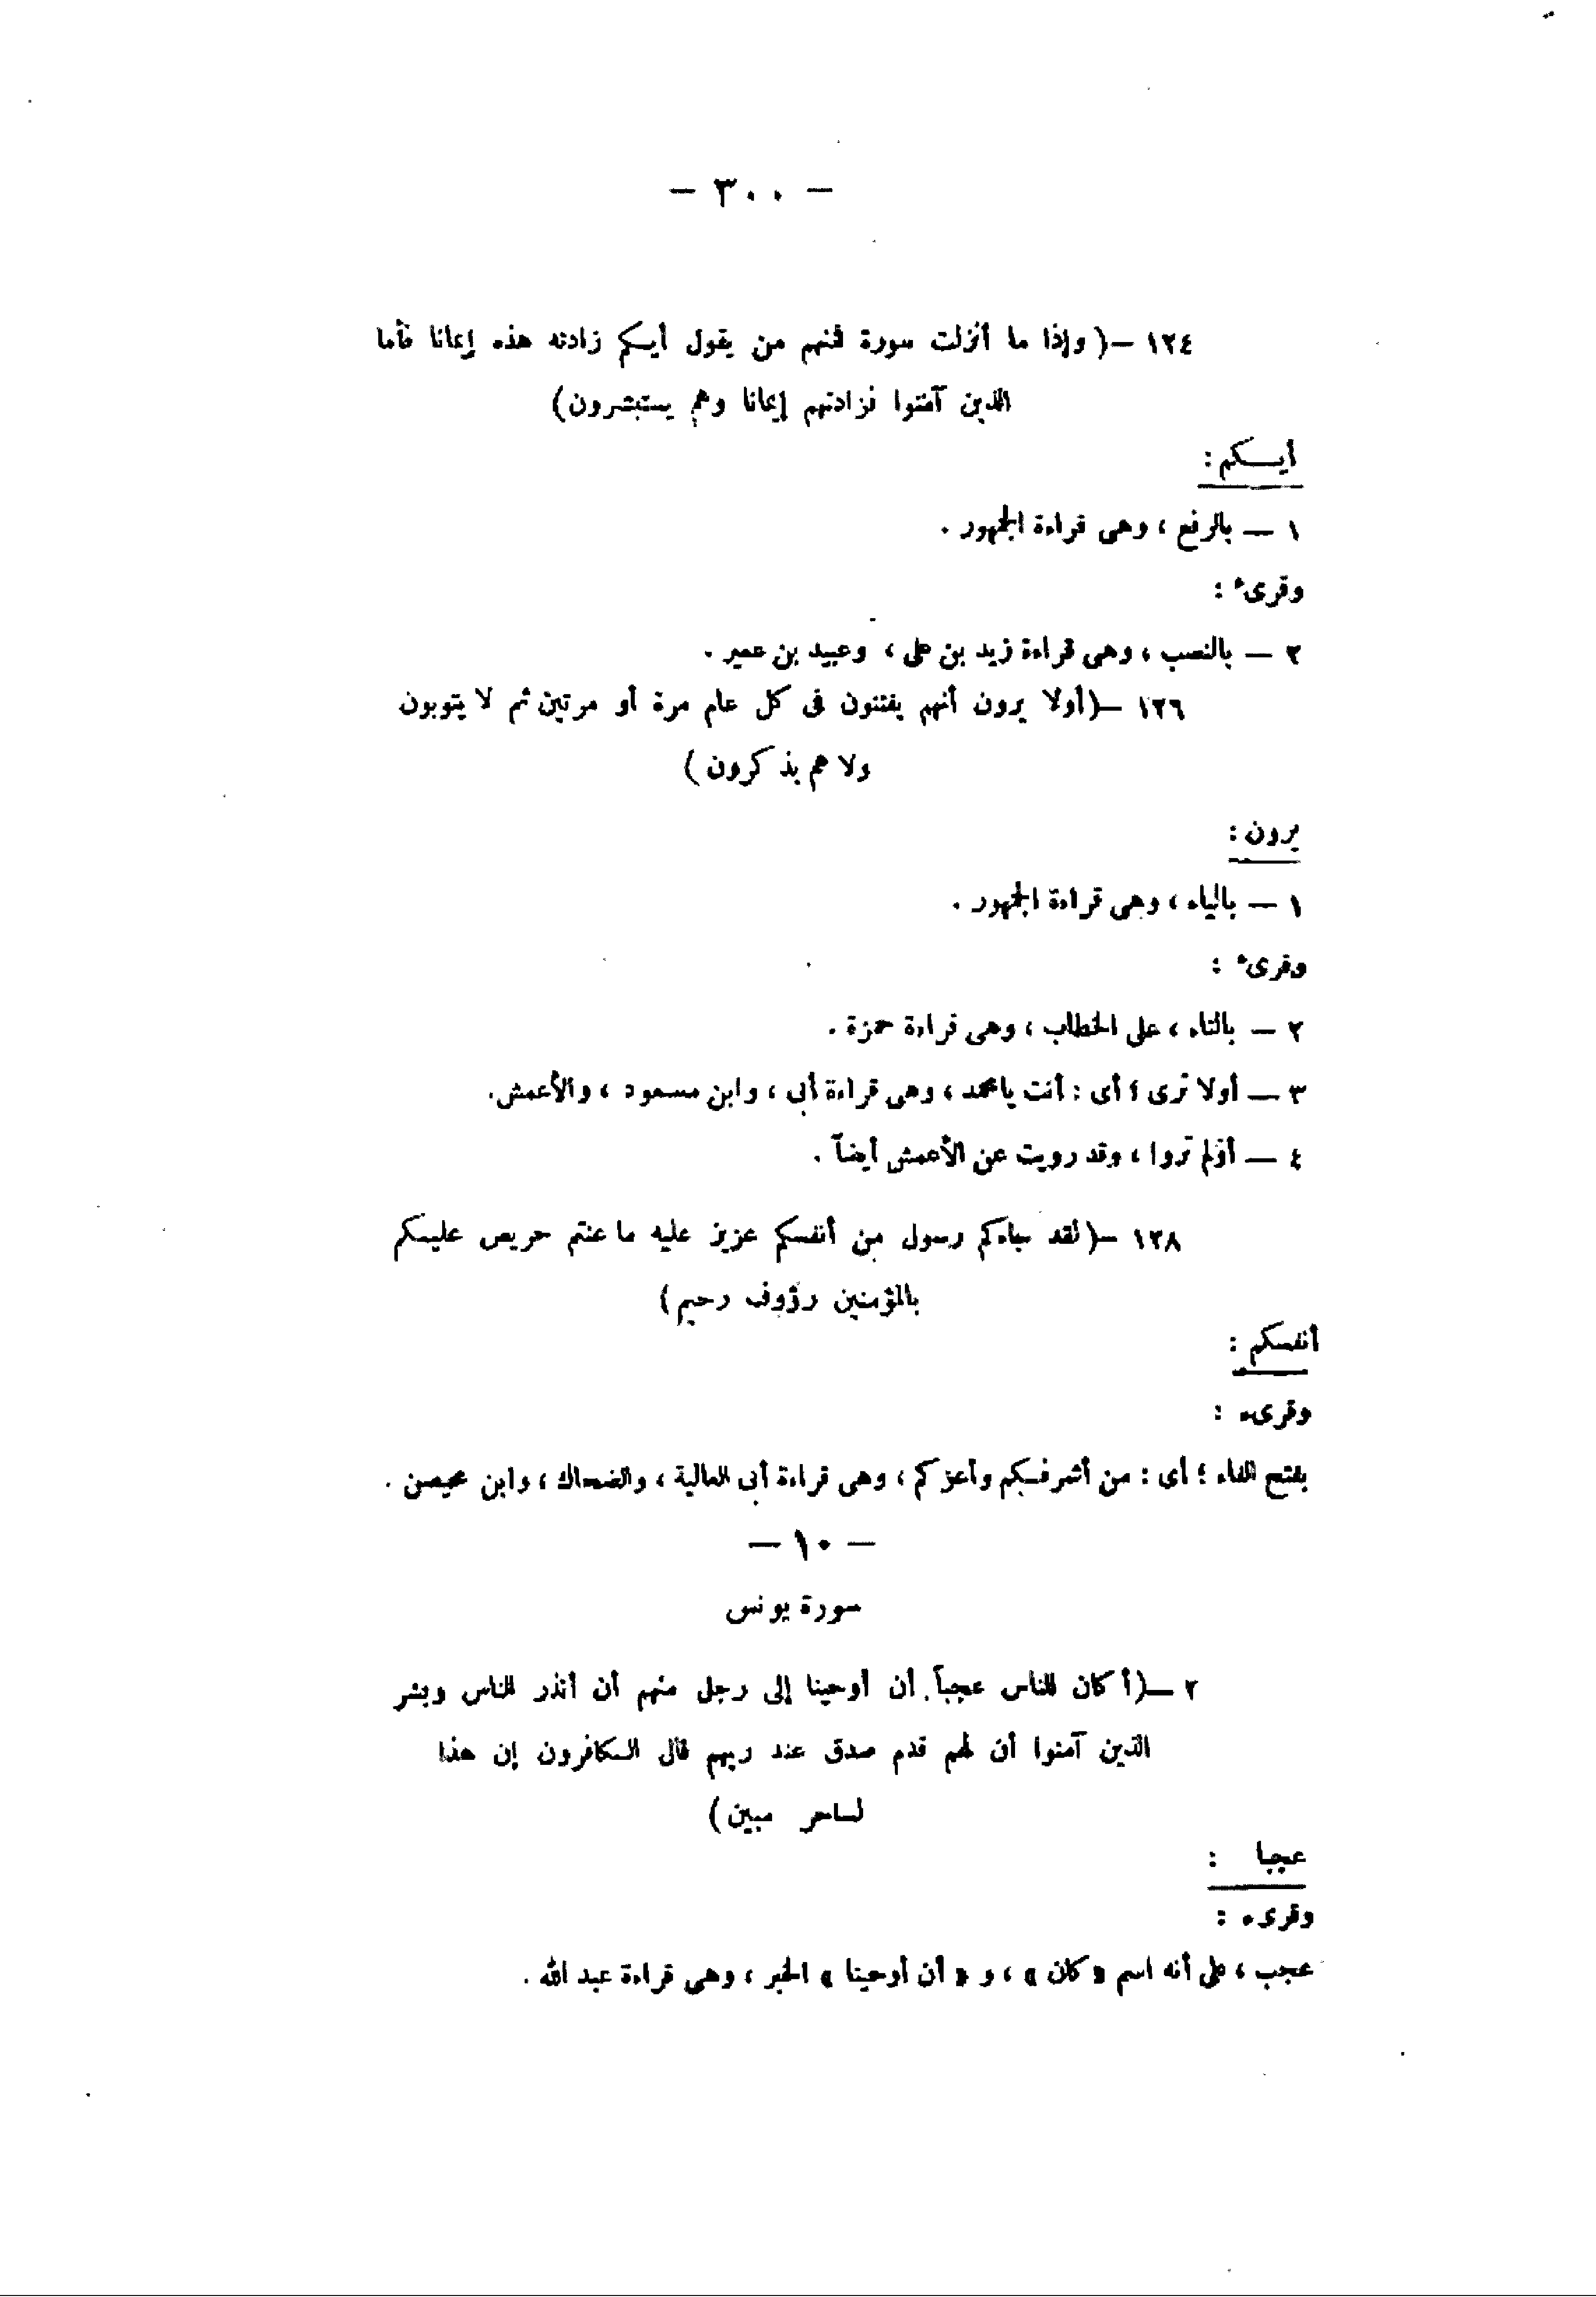 — ٣٠٠ —
١٢٤ —( وإذا ما أنزلت سورة فمنهم من يقول أيكم زادته هذه إيمانا فأما
الذين آمنوا فزادتهم إيمانا وهم يستبشرون)
أيكم :
١ — بالرفع ، وهى قراءة الجمهور .
وقرىء :
٢ — بالنصب ، وهى قراءة زيد بن على ، وعبيد بن عمير .
١٢٦ —(أولا يرون أنهم يفتنون فى كل عام مرة أو مرتين ثم لا يتوبون
ولا هم يذكرون )
يرون :
١ — بالياء ، وهى قراءة الجمهور .
وقرىء :
٢ — بالتاء ، على الخطاب ، وهى قراءة حمزة .
٣ — أولا ترى ؛ أى : أنت يا محمد ، وهى قراءة أبى ، وابن مسعود ، والأعمش.
٤ — أو لم تروا ، وقد رويت عن الأعمش أيضاً .
١٢٨ —( لقد جاءكم رسول من أنفسكم عزيز عليه ما عنتم حريص عليكم
بالمؤمنين رؤوف رحيم)
أنفسكم :
وقرىء :
بفتح الفاء ؛ أى : من أشرفكم وأعزكم ، وهى قراءة أبى العالية ، والضحاك ، وابن محيصن .
— ١٠ —
سورة يونس
٢ —(أكان للناس عجباً أن أوحينا إلى رجل منهم أن أنذر الناس وبشر
الذين آمنوا أن لهم قدم صدق عند ربهم قال الكافرون إن هذا
لساحر مبين)
عجبا :
وقرىء :
عجب ، على أنه اسم «كان » ، و « أن أوحينا » الخبر ، وهى قراءة عبد الله .